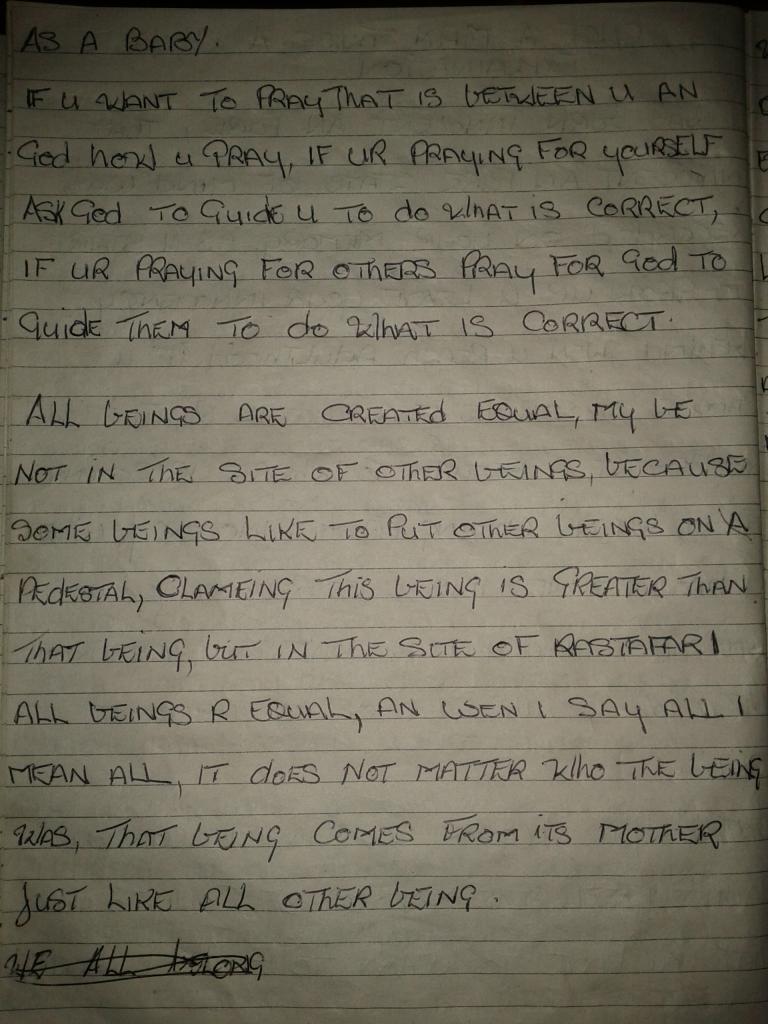 AS A BABY.
IF U WANT TO PRAY THAT IS BETWEEN U AN
God how u PRAY, IF UR PRAYING FOR YOURSELF
ASK God TO GuidE U TO do WhAT iS CORRECT,
IF UR PRAYING FOR OTHERS PRAY FOR God TO
GuidE THEM TO do WhAT IS CORRECT.
ALL bEINGS ARE CREATEd EQUAL, MY bE
NOT IN ThE SITE OF OTHER bEINGS, bECAUSE
SOME bEINGS LIKE TO PUT OTHER bEINGS ON A
PEdESTAL, CLAMEING ThiS bEING IS GREATER ThAN
ThAT bEING, buT IN ThE SITE OF RASTAFARI
ALL bEINGS R EQUAL, AN WEN I SAY ALL I
MEAN ALL, IT dOES NOT MATTER Who ThE bEING
WAS, ThAT bEING COMES FROM iTS MOTHER
JUST LIKE ALL OTHER bEING.
WE ALL bELONG